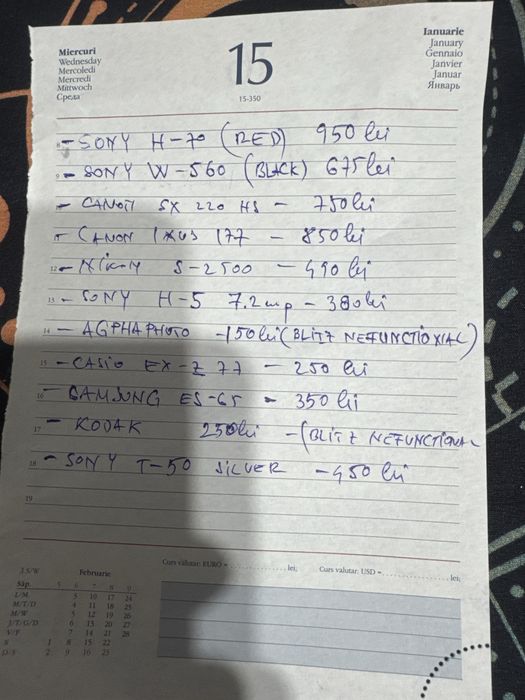 Miercuri
Wednesday
Mercoledì
Mercredi
Mittwoch
Среда
15
15-350
Ianuarie
January
Gennaio
Janvier
Januar
Январь
- SONY H-70 (RED) 950 lei
9 - SONY W-560 (BLACK) 675 lei
- CANON SX 220 HS - 750 lei
- CANON IXUS 177 - 850 lei
12 - Nikon S-2500 - 490 lei
13 - SONY H-5 7.2mp - 380 lei
14 - AGPHAPHOTO - 150 lei (BLITZ NEFUNCTIONAL)
15 - CASIO EX-Z 77 - 250 lei
16 - SAMSUNG ES-65 - 350 lei
17 - KODAK 250 lei - (BLITZ NEFUNCTIONAL
18 - SONY T-50 SILVER - 450 lei
19
Curs valutar: EURO = lei; Curs valutar: USD = lei;
Februarie
Săp. 5 6 7 8 9
L/M 3 10 17 24
M/T/D 4 11 18 25
M/W 5 12 19 26
J/T/G/D 6 13 20 27
V/F 7 14 21 28
S 1 8 15 22
D/S 2 9 16 23